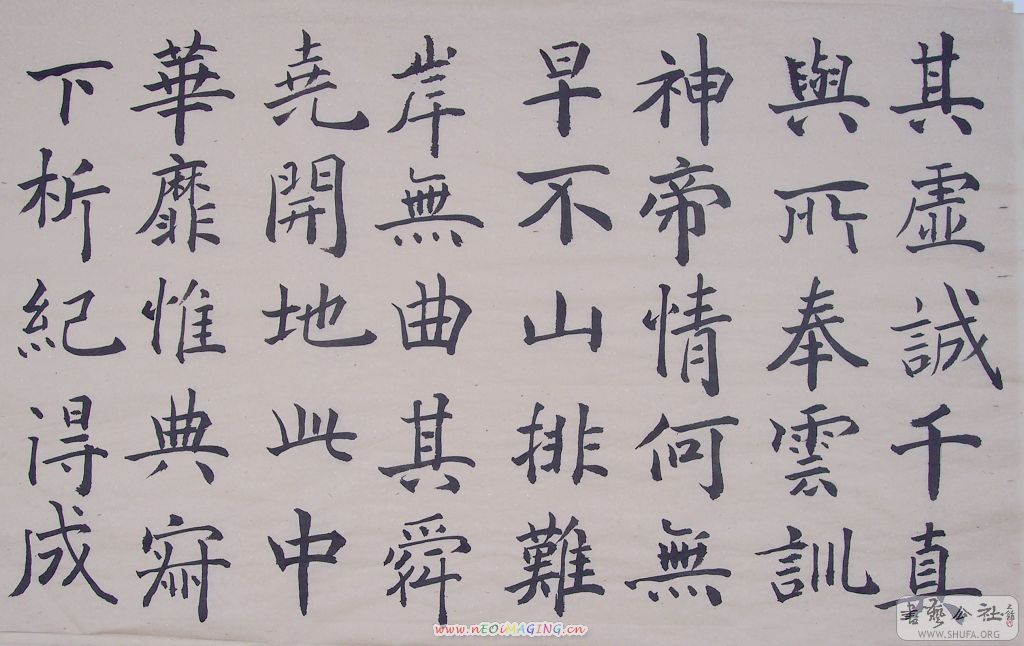 其虛誠千真
與所奉雲訓
神帝情何無
早不山排難
岸無曲其舜
堯開地此中
華靡惟典
下析紀得成
書藝公社
WWW.SHUFA.ORG
www.nEOiMAGING.cn